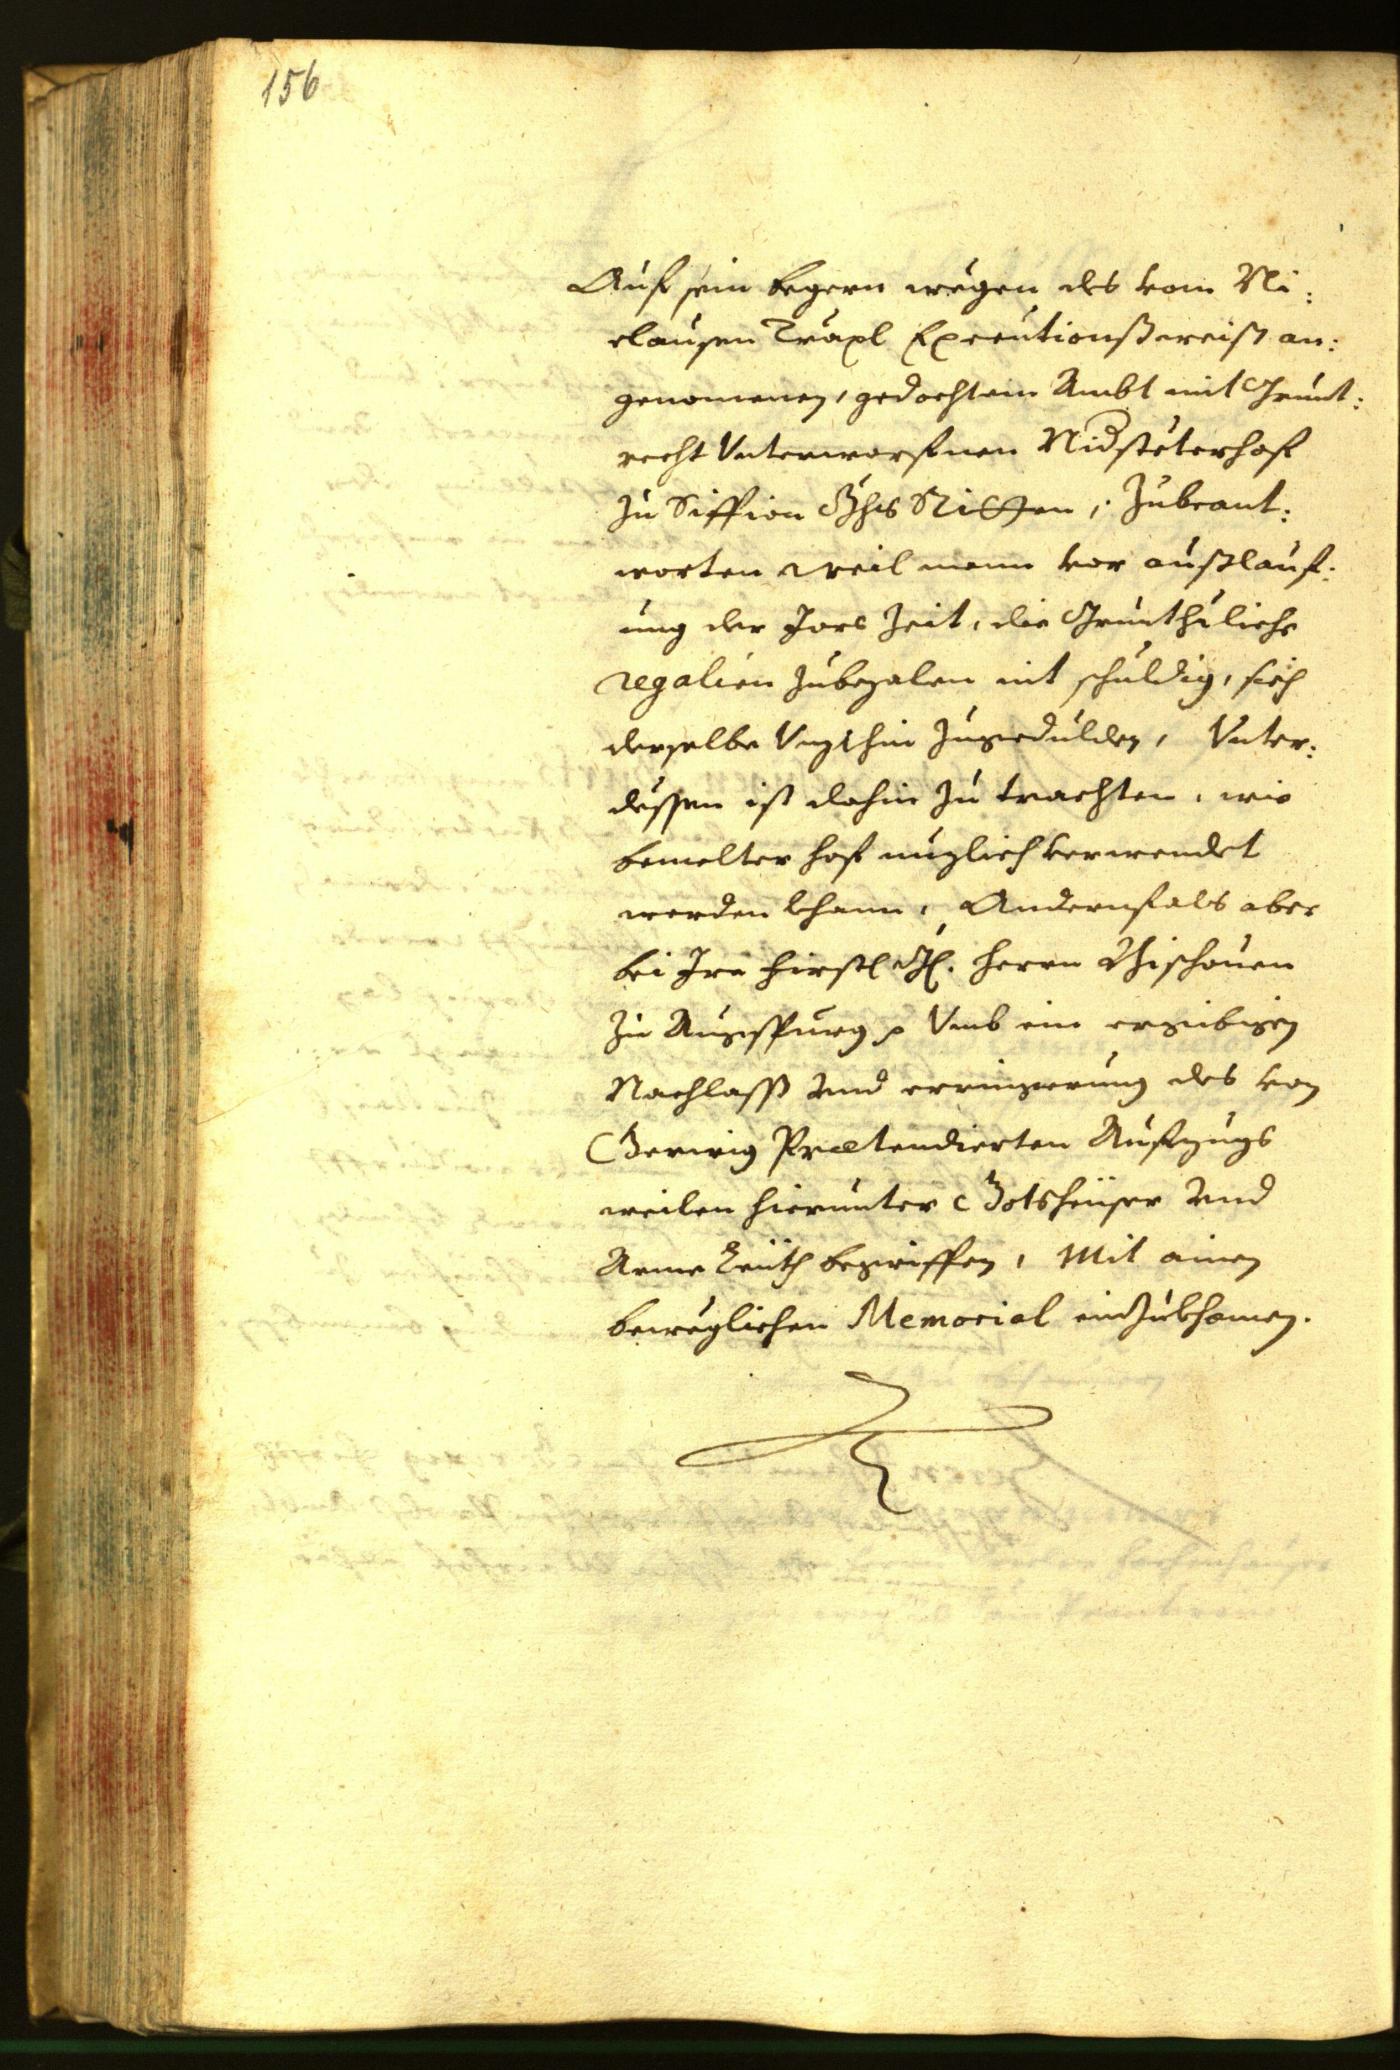 156
Auf sein begern wegen des vom Ni:
clausen Träxl Executionßweiß an:
genomenen, gedachtem Ambt mit Grundt:
recht Vnterworfnen Nidsteterhof
zu Siffion Ghts Ritten, zubeant:
worten weil mann vor außlauf:
ung der Jars Zeit, die Grundtheliche
regalien zubezalen nit schuldig, sich
derselbe Vnzthin zugedulden, Vnter:
dessen ist dahin zu trachten, wie
bemelter hof nuzlich verwendet
werden khann, Andernfals aber
bei Irn Fürstl. Gl. Herrn Bischouen
zu Augspurg p Vmb ein ergibigen
Nachlasß vnd erringerung des von
Gerwig Prætendierten Aufzugs
weilen hierunter Gotsheüser vnd
Arme Leüth begriffen, Mit ainen
beweglichen Memorial einzukhomen.